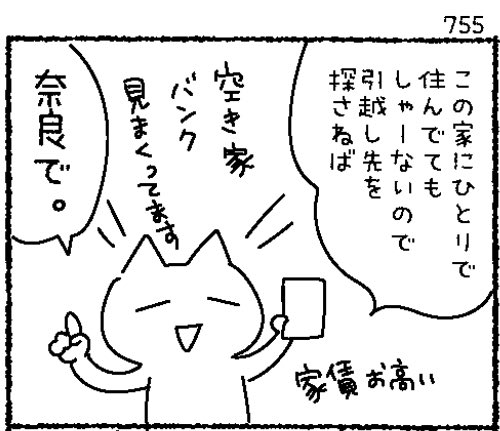 755
この家にひとりで
住んでても
しゃーないので
引越し先を
探さねば
空き家
バンク
見まくってます
奈良で。
家賃お高い